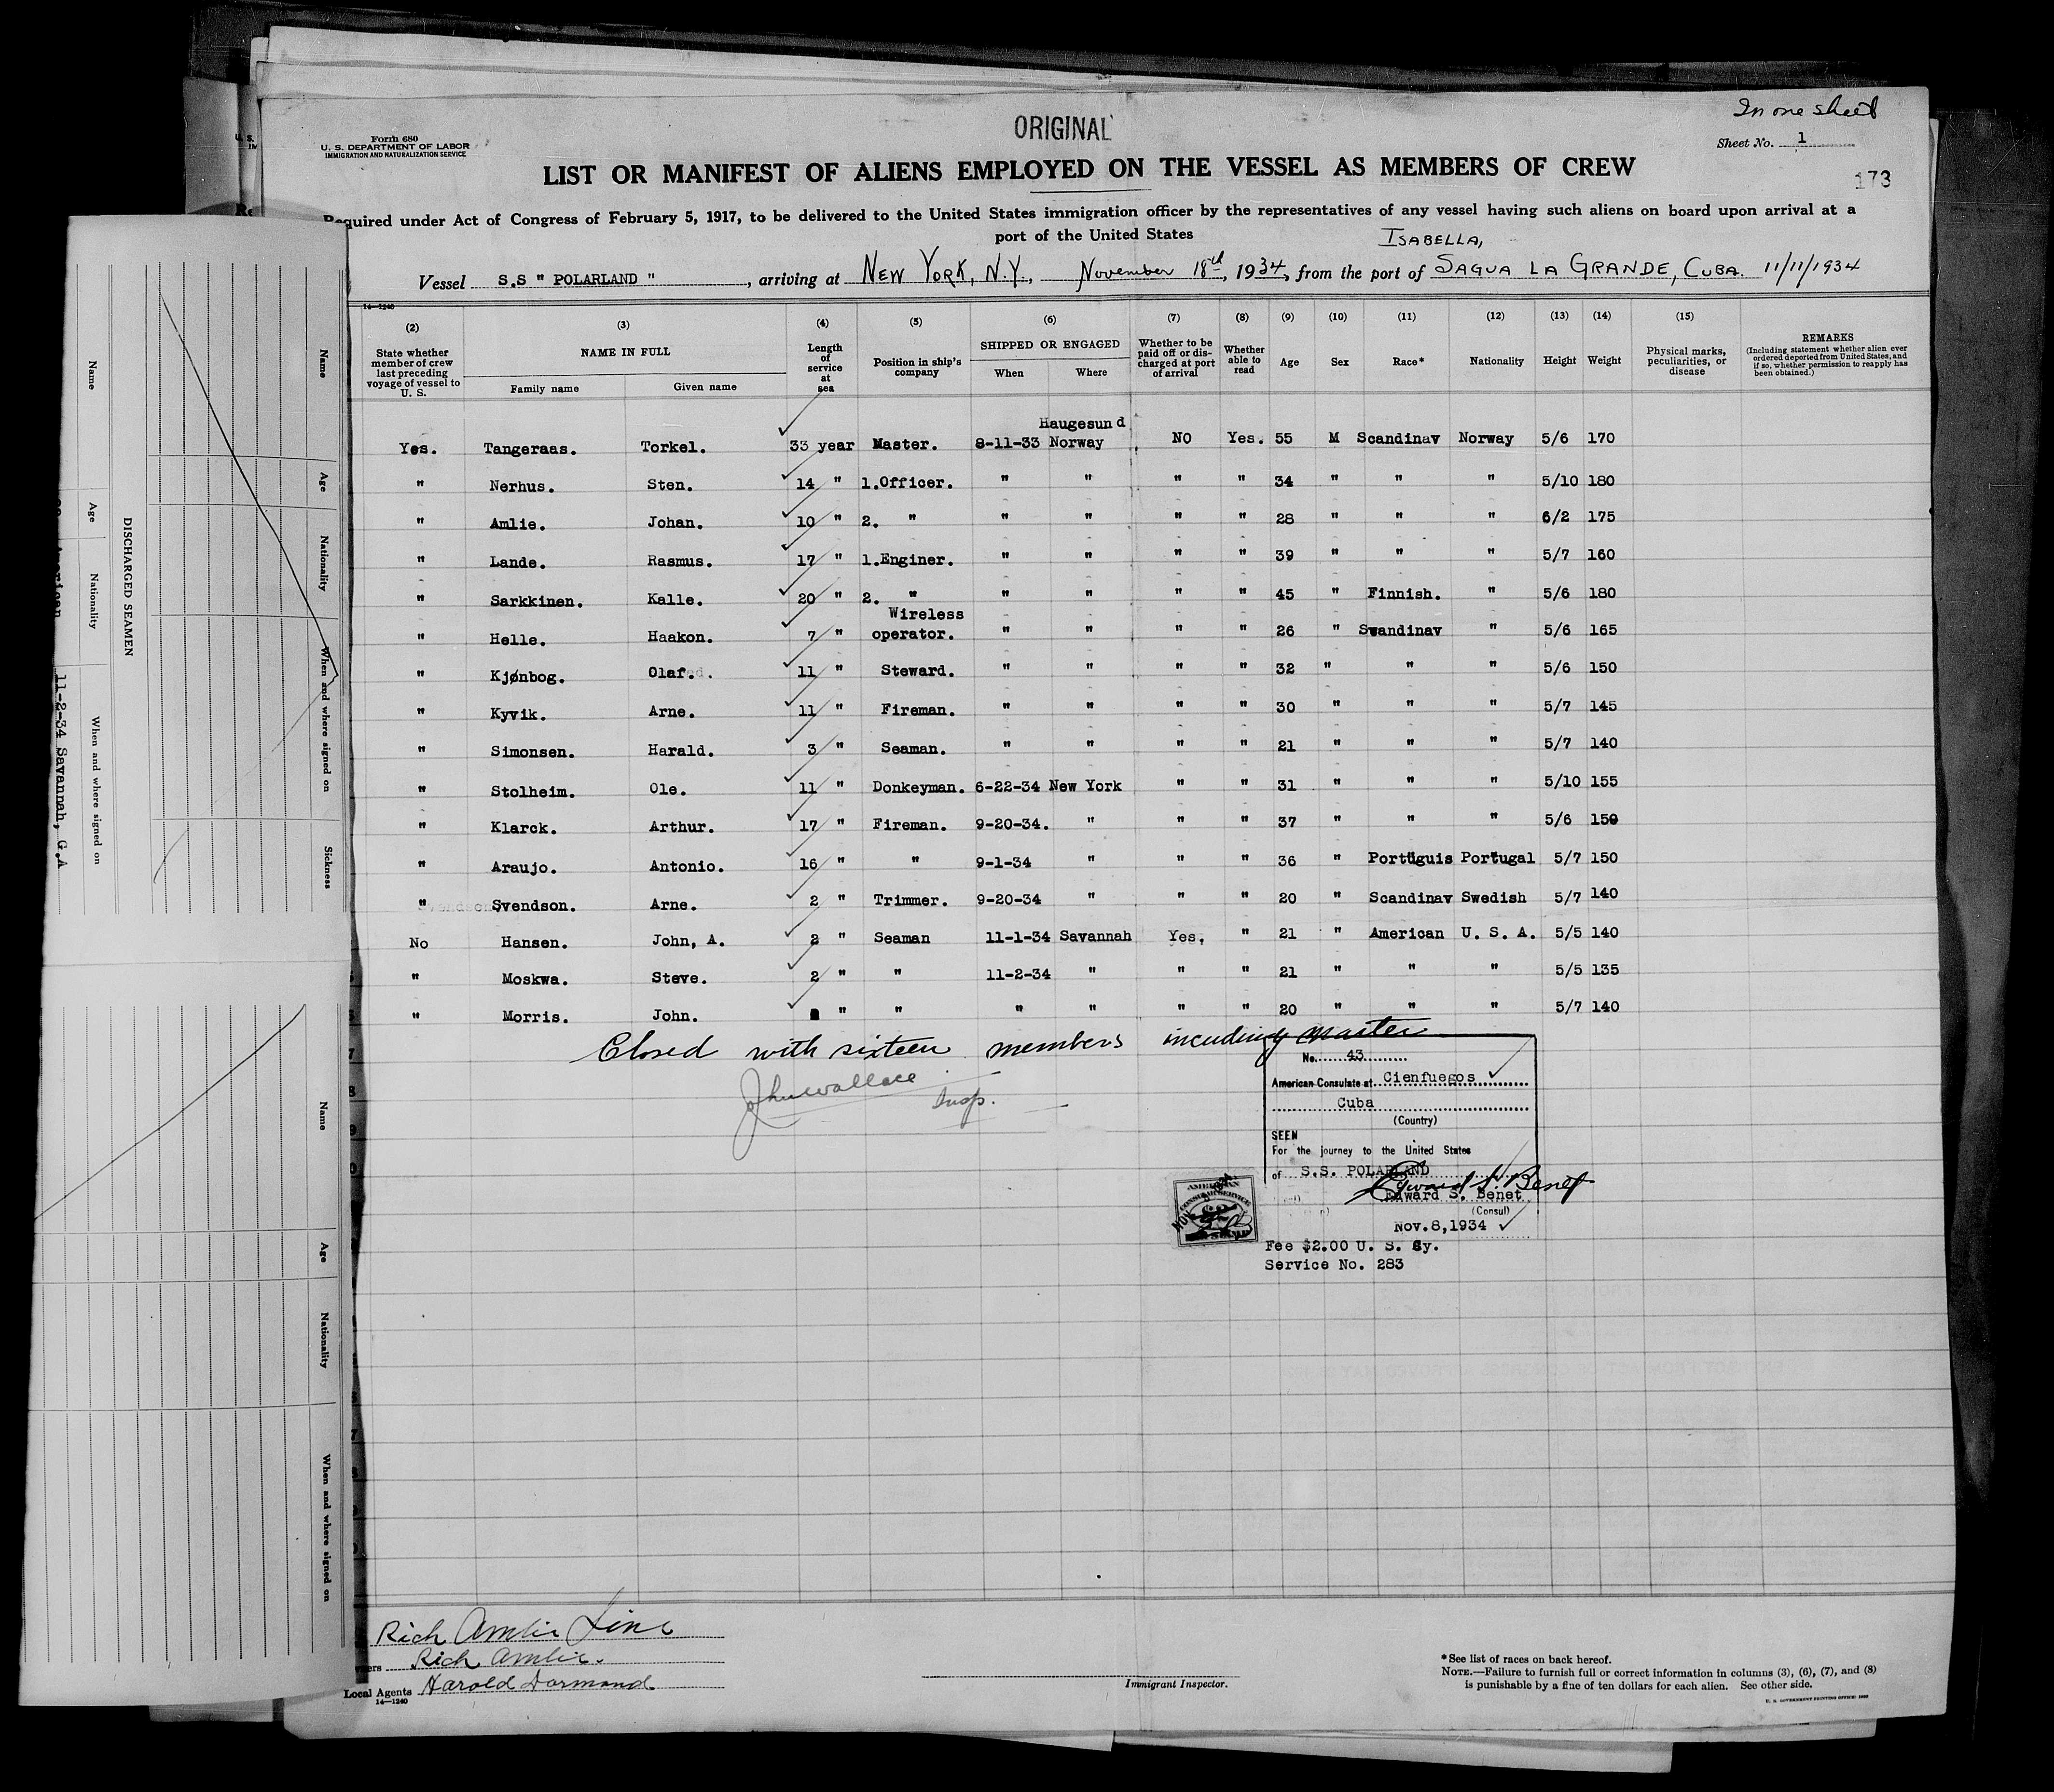 In one sheet
ORIGINAL
Form 680
U. S. DEPARTMENT OF LABOR
IMMIGRATION AND NATURALIZATION SERVICE
Sheet No. 1
LIST OR MANIFEST OF ALIENS EMPLOYED ON THE VESSEL AS MEMBERS OF CREW
173
Required under Act of Congress of February 5, 1917, to be delivered to the United States immigration officer by the representatives of any vessel having such aliens on board upon arrival at a
port of the United States
ISABELLA,
Vessel S.S " POLARLAND ", arriving at NEW YORK, N.Y., November 18th, 1934, from the port of SAGUA LA GRANDE, CUBA. 11/11/1934
14—1240
(2) (3) (4) (5) (6) (7) (8) (9) (10) (11) (12) (13) (14) (15)
State whether member of crew last preceding voyage of vessel to U. S.
NAME IN FULL
Family name Given name
Length of service at sea
Position in ship's company
SHIPPED OR ENGAGED
When Where
Whether to be paid off or discharged at port of arrival
Whether able to read
Age Sex Race* Nationality Height Weight
Physical marks, peculiarities, or disease
REMARKS
(Including statement whether alien ever ordered deported from United States, and if so, whether permission to reapply has been obtained.)
Haugesund
Yes. Tangeraas. Torkel. 33 year Master. 8-11-33 Norway NO Yes. 55 M Scandinav Norway 5/6 170
" Nerhus. Sten. 14 " 1.Officer. " " " " 34 " " " 5/10 180
" Amlie. Johan. 10 " 2. " " " " " 28 " " " 6/2 175
" Lande. Rasmus. 17 " 1.Enginer. " " " " 39 " " " 5/7 160
" Sarkkinen. Kalle. 20 " 2. " " " " " 45 " Finnish. " 5/6 180
Wireless
" Helle. Haakon. 7 " operator. " " " " 26 " Swandinav " 5/6 165
" Kjønbog. Olaf. 11 " Steward. " " " " 32 " " " 5/6 150
" Kyvik. Arne. 11 " Fireman. " " " " 30 " " " 5/7 145
" Simonsen. Harald. 3 " Seaman. " " " " 21 " " " 5/7 140
" Stolheim. Ole. 11 " Donkeyman. 6-22-34 New York " " 31 " " " 5/10 155
" Klarck. Arthur. 17 " Fireman. 9-20-34. " " " 37 " " " 5/6 150
" Araujo. Antonio. 16 " " 9-1-34 " " " 36 " Portuguis Portugal 5/7 150
" Svendson. Arne. 2 " Trimmer. 9-20-34 " " " 20 " Scandinav Swedish 5/7 140
No Hansen. John, A. 2 " Seaman 11-1-34 Savannah Yes, " 21 " American U. S. A. 5/5 140
" Moskwa. Steve. 2 " " 11-2-34 " " " 21 " " " 5/5 135
" Morris. John. " " " " " " 20 " " " 5/7 140
Closed with sixteen members incuding master
John Wallace
Insp.
No. 43
American Consulate at Cienfuegos
Cuba
(Country)
SEEN
For the journey to the United States
of S.S. POLARLAND
Edward S. Benet
Edward S. Benet
(Consul)
Nov.8,1934
Fee $2.00 U. S. Cy.
Service No. 283
AMERICAN
CONSULAR SERVICE
Rich Amlie Line
Rich Amlie.
Local Agents Harold Dormand
14—1240
Immigrant Inspector.
*See list of races on back hereof.
NOTE.—Failure to furnish full or correct information in columns (3), (6), (7), and (8)
is punishable by a fine of ten dollars for each alien. See other side.
U. S. GOVERNMENT PRINTING OFFICE: 1933
DISCHARGED SEAMEN
Name Age Nationality When and where signed on
Name Age Nationality When and where signed on Sickness
11-2-34 Savannah, G.A
Name Age Nationality When and where signed on